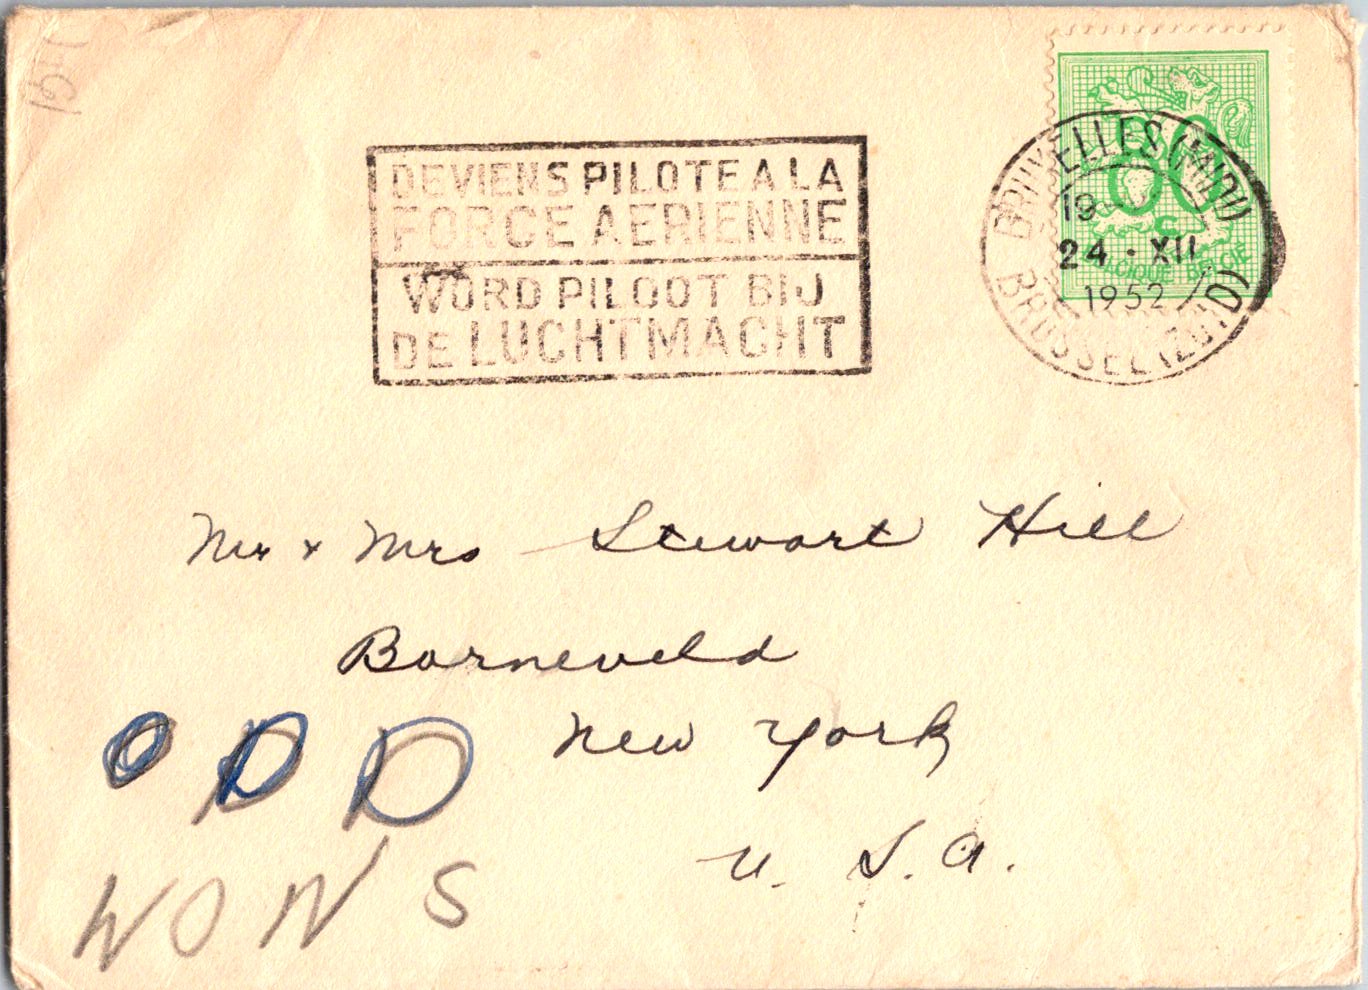 DEVIENS PILOTE A LA
FORCE AERIENNE
WORD PILOOT BIJ
DE LUCHTMACHT
BRUXELLES (MIDI)
19
24 · XII
1952
BRUSSEL (ZUID)
80
BELGIQUE BELGIE
Mr & Mrs Stewart Hill
Barneveld
New York
U. S. A.
O D D
W O W S